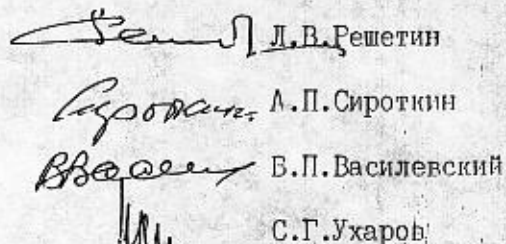 Л.В.Решетин
А.П.Сироткин
Б.П.Василевский
С.Г.Ухаров